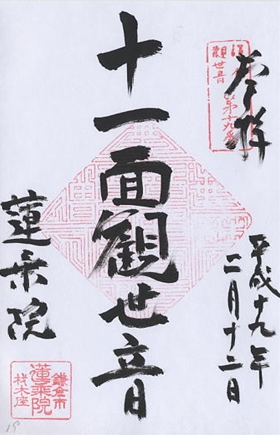 奉拝
平成十九年
二月十二日
十一面観世音
蓮乗院
鎌倉市
蓮乗院
材木座